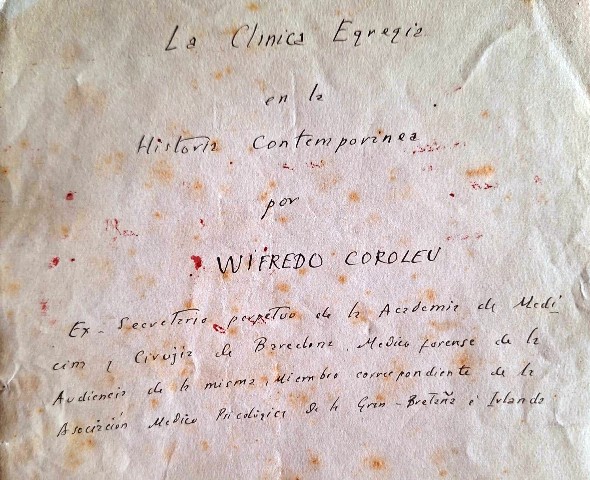 La Clinica Egregia
en la
Historia Contemporanea
por
WIFREDO COROLEU
Ex-Secretario perpetuo de la Academia de Medi
cina y Cirujia de Barcelona. Medico forense de la
Audiencia de la misma. Miembro correspondiente de la
Asociación Medico Psicológica de la Gran-Bretaña é Irlanda